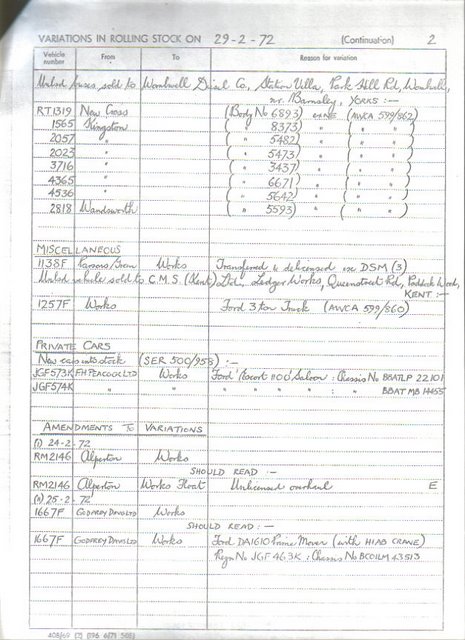 VARIATIONS IN ROLLING STOCK ON 29-2-72 (Continuation) 2
Vehicle number From To Reason for variation
Listed buses, sold to Wombwell Diesel Co, Station Villa, Park Hill Rd, Wombwell,
nr. Barnsley, YORKS :—
RT1319 New Cross (Body No 6893) (AWCA 599/562)
1565 Kingston ( " 8373) " ( " " )
2057 " ( " 5482) " ( " " )
2023 " ( " 5473) " ( " " )
3716 " ( " 3437) " ( " " )
4365 " ( " 6671) " ( " " )
4536 " ( " 5642) " ( " " )
2818 Wandsworth ( " 5593) " ( " " )
MISCELLANEOUS
1138F Parsons Green Works Transferred & delicensed ex DSM (3)
Listed vehicle sold to C.M.S. (Kent) Ltd, Ledger Works, Queen Street Rd, Paddock Wood,
KENT :—
1257F Works Ford 3 ton Truck (AWCA 599/560)
PRIVATE CARS
New cars into stock (SER 500/958) :—
JGF573K FH PEACOCK LTD Works Ford 'Escort 1100' Saloon : Chassis No BBATLP 22101
JGF574K " " " " " " : " BBAT MB 14455
AMENDMENTS TO VARIATIONS
(1) 24-2-72
RM2146 Alperton Works
SHOULD READ :—
RM2146 Alperton Works Float Unlicensed overhaul E
25-2-72
1667F GODFREY DAVIS LTD Works
SHOULD READ :—
1667F GODFREY DAVIS LTD Works Ford DA1610 Prime Mover (with HIAB CRANE)
Regn No JGF 463K : Chassis No BCOILM 43513
408/69 (2) (196 6/71 505)